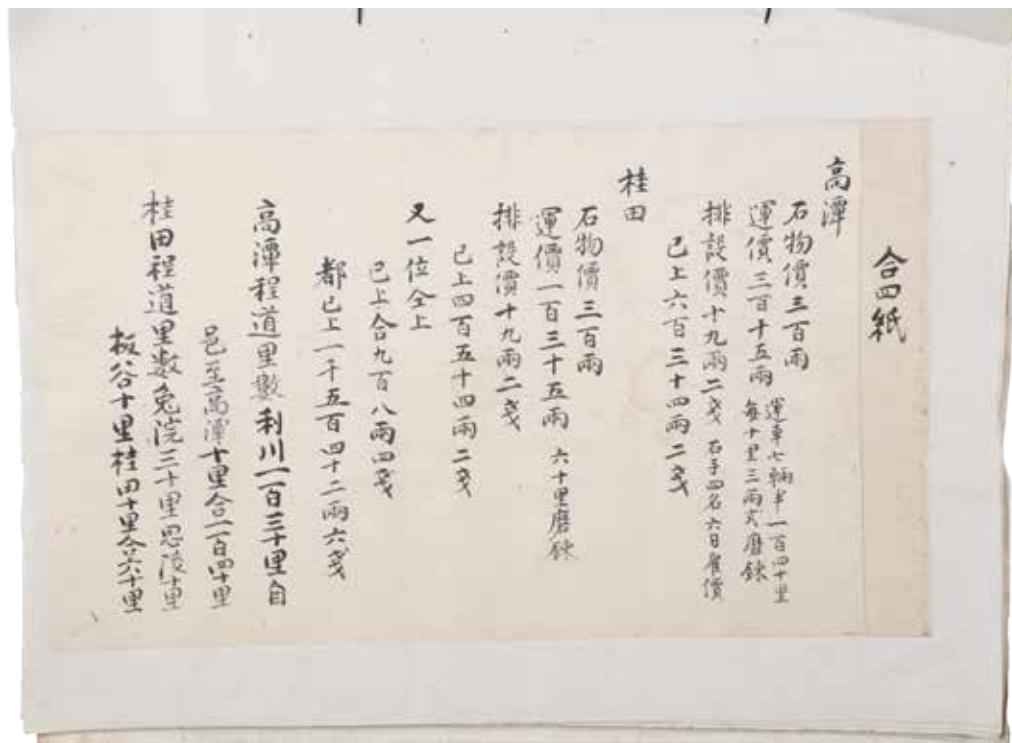 合四紙
高潭
石物價三百兩
運價三百十五兩 運車七輛半一百四十里
每十里三兩式磨鍊
排設價十九兩二戔 石手四名六日雇價
已上六百三十四兩二戔
桂田
石物價三百兩
運價一百三十五兩 六十里磨鍊
排設價十九兩二戔
已上四百五十四兩二戔
又一位仝上
已上合九百八兩四戔
都已上一千五百四十二兩六戔
高潭程道里數利川一百三十里自
邑至高潭十里合一百四十里
桂田程道里數兔院三十里思陵十里
板谷十里桂田十里合六十里